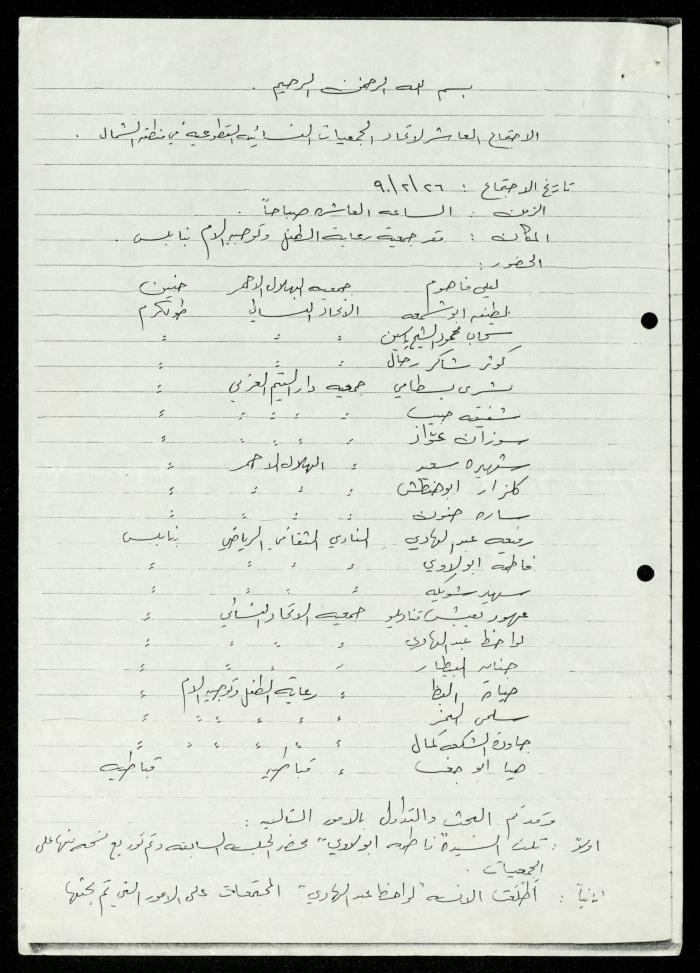 بسم الله الرحمن الرحيم .
الاجتماع العاشر لاتحاد الجمعيات النسائيه التطوعيه في منطقة الشمال .
تاريخ الاجتماع : ٩٠/٢/٢٦
الزمن : الساعه العاشره صباحاً .
المكان : مقر جمعية رعاية الطفل وتوجيه الام نابلس .
الحضور :
ليلى فاهوم جمعيه الهلال الاحمر جنين
لطيفه ابو شمعه الاتحاد النسائي طولكرم
سحاب محمود الشيخ ياسين " " "
كوثر شاكر رحال " " "
بشرى بسطامي جمعيه دار اليتيم العربي "
شفيقه حبيب " " " " "
سوزان عواز " " " " "
شهيره سعد " الهلال الاحمر "
كلزار ابو حنطش " " " "
ساره حنون " " " "
رفيعه عبد الهادي النادي الثقافي الرياضي نابلس
فاطمه ابو لاوي " " " "
سهير شويكه " " " "
عهود يعيش قناديلو جمعيه الاتحاد النسائي "
لواحظ عبد الهادي " " " "
البيطار " " " "
حياة البظ " رعاية الطفل وتوجيه الام "
سلمى " " " " " "
الشكعه كمال " " " " " "
ابو " قباطيه قباطيه
وقد تم البحث والتداول بالامور التاليه :
اولاً : تلت السيدة "فاطمه ابو لاوي" محضر الجلسه السابقه وتم توزيع نسخه منها على
الجمعيات .
ثانياً : أطلعت الانسه "لواحظ عبد الهادي" المجتمعات على الامور التي تم بحثها